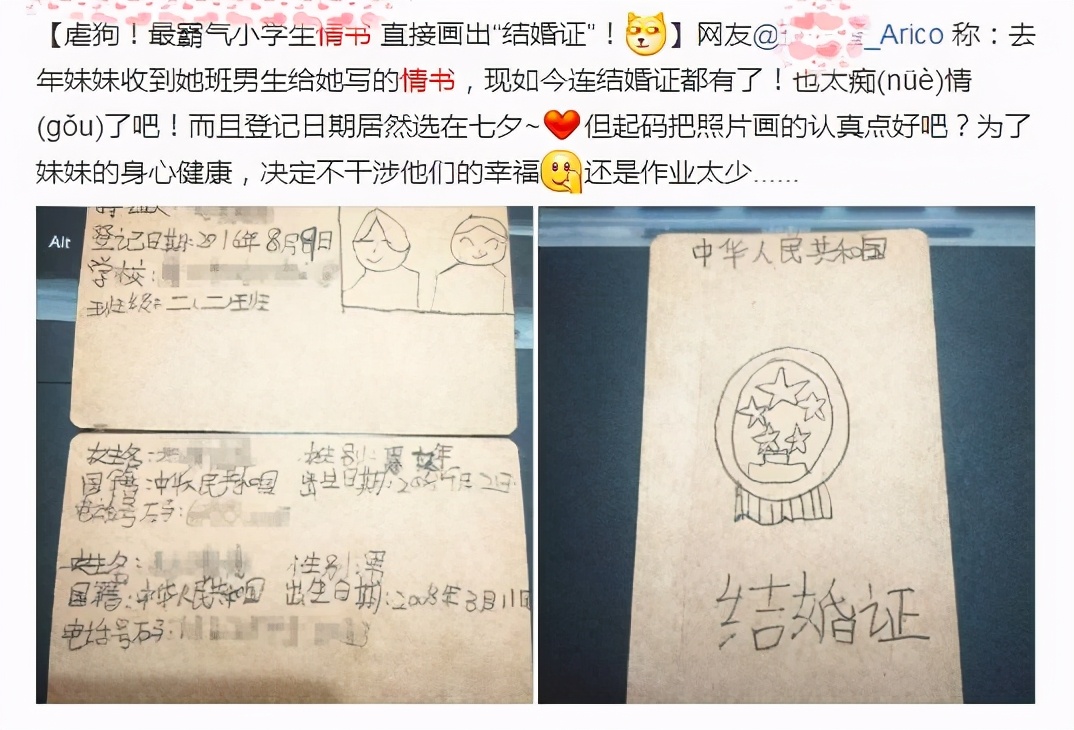 【虐狗！最霸气小学生情书 直接画出“结婚证”！】网友@ _Arico 称：去
年妹妹收到她班男生给她写的情书，现如今连结婚证都有了！也太痴(nüè)情
(gǒu)了吧！而且登记日期居然选在七夕~但起码把照片画的认真点好吧？为了
妹妹的身心健康，决定不干涉他们的幸福 还是作业太少......
Alt
登记日期:2016年8月9日
学校:
班级:二(二)班
姓名: 性别:女
国籍:中华人民共和国 出生日期:
电话号码:
姓名: 性别:男
国籍:中华人民共和国 出生日期:2008年3月11日
电话号码:
中华人民共和国
结婚证